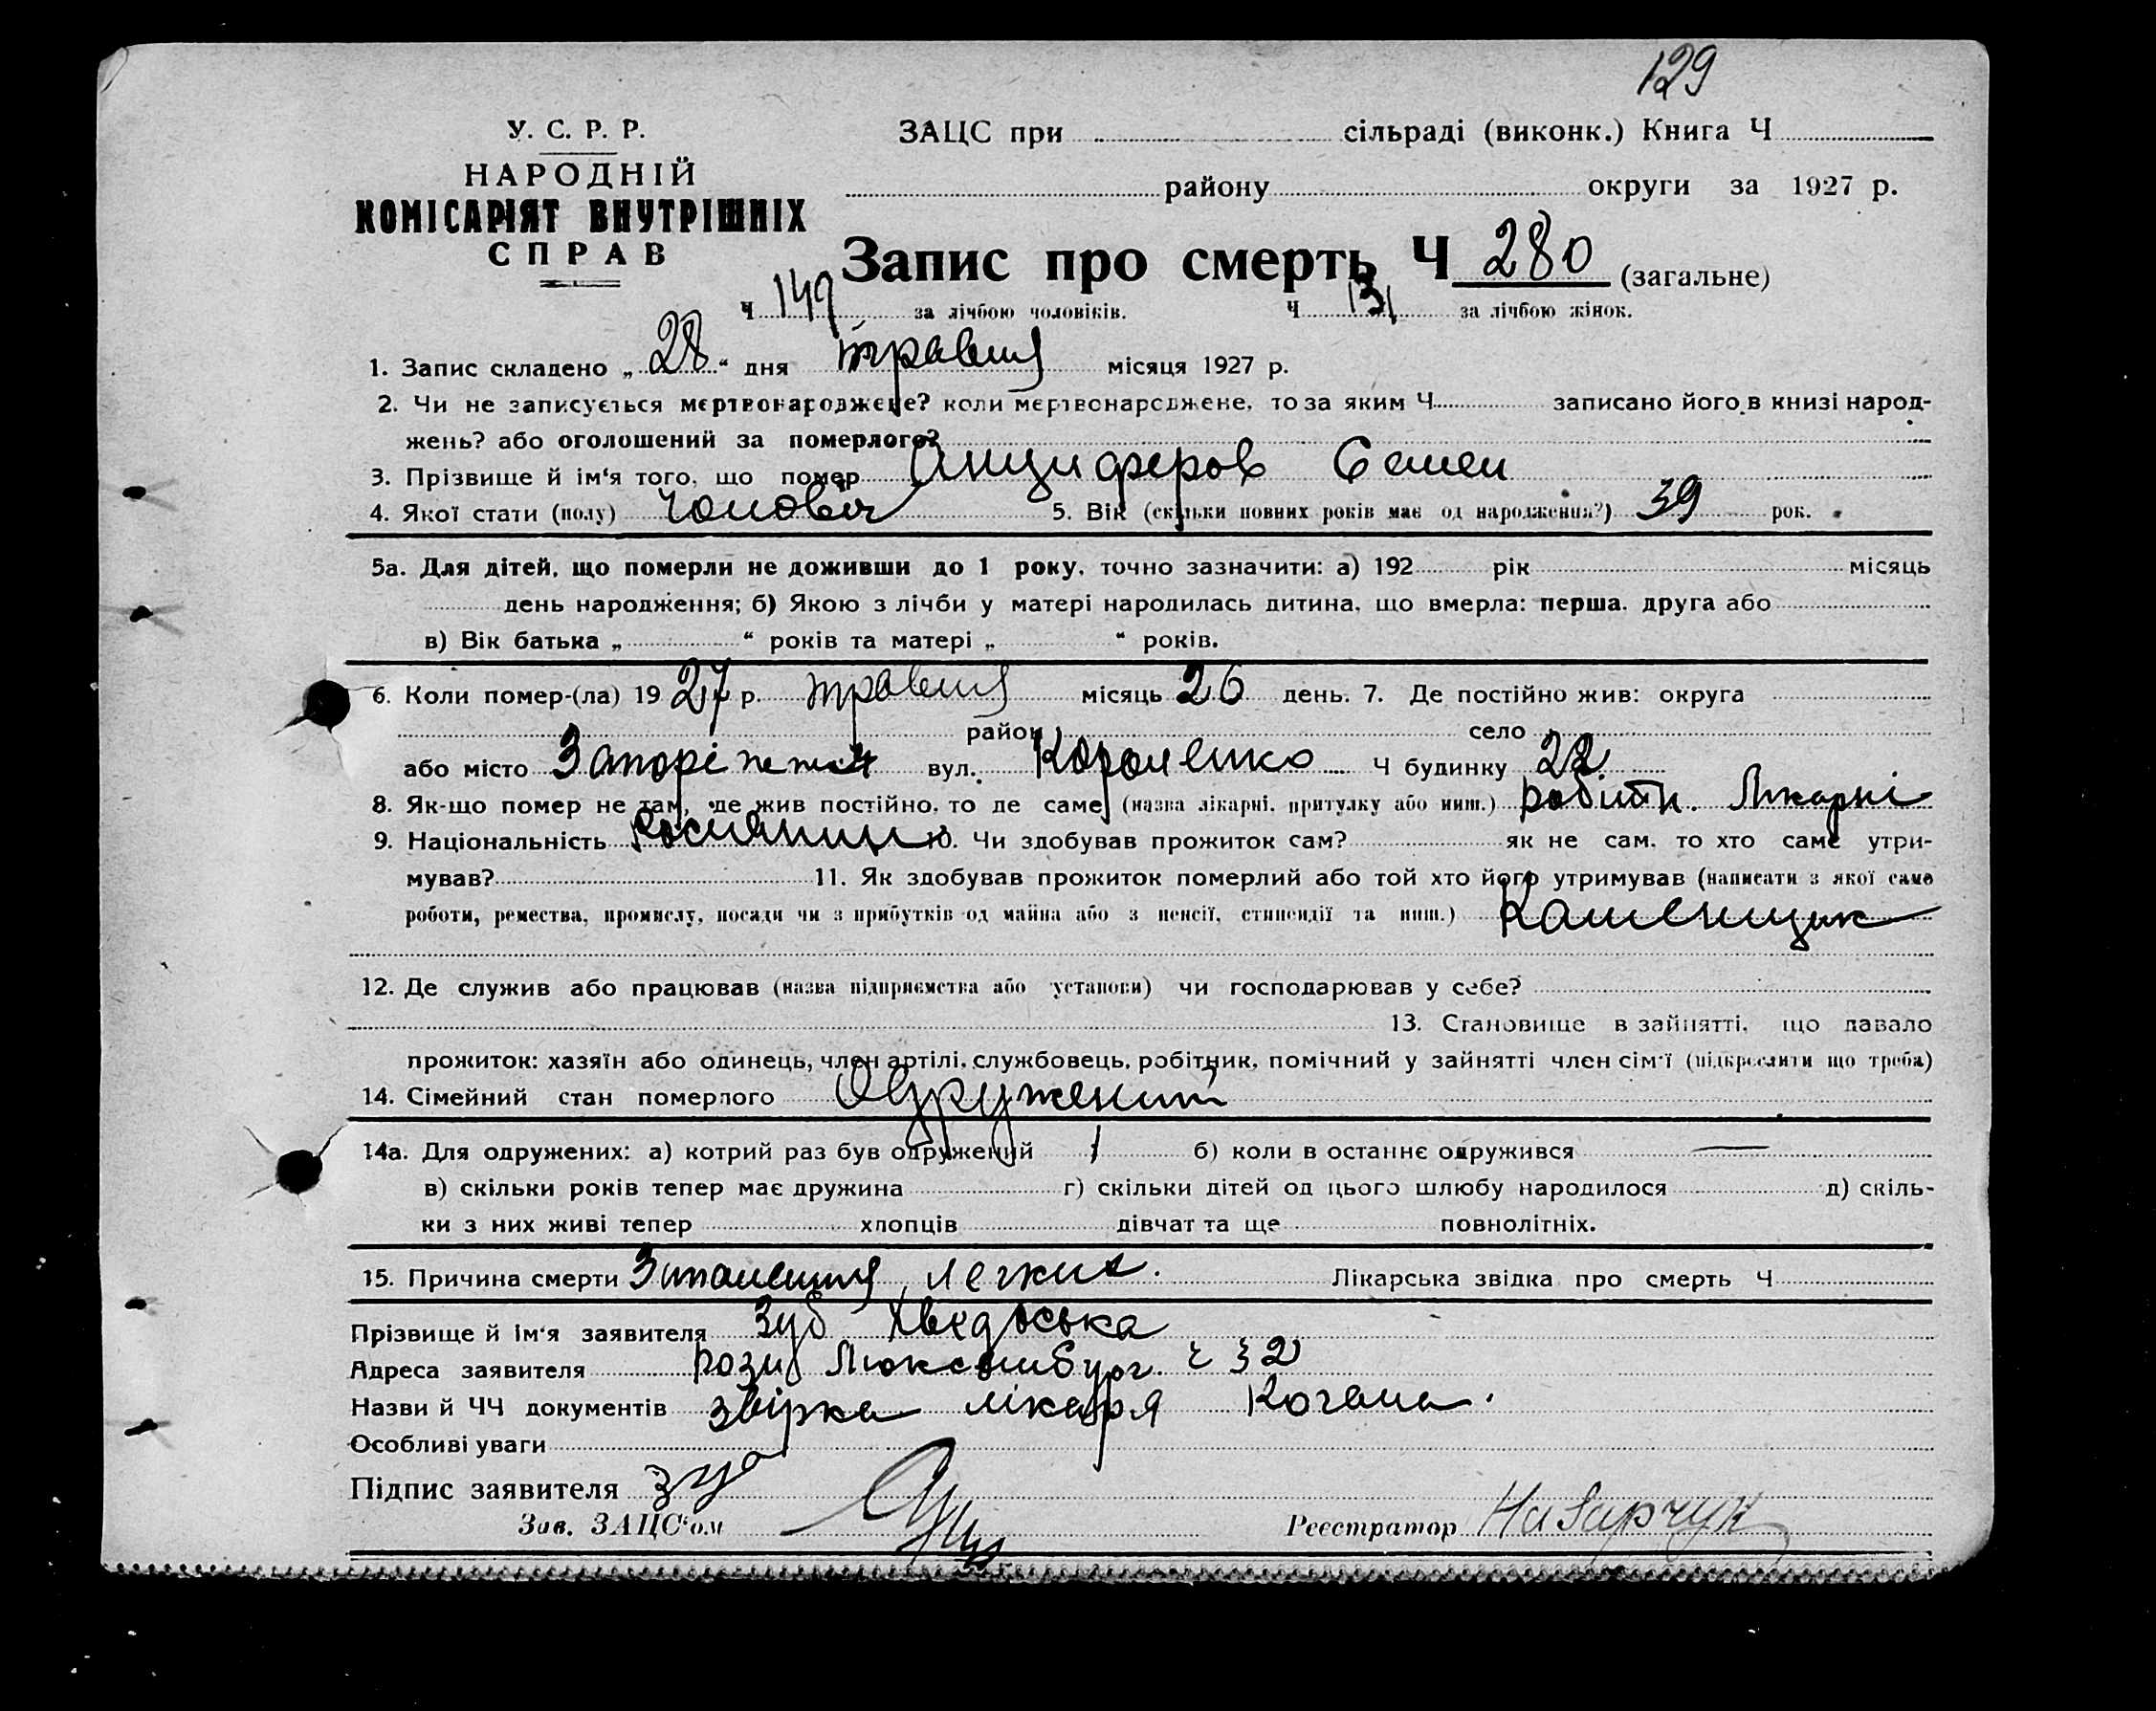 129
У. С. Р. Р.
НАРОДНІЙ
КОМІСАРІЯТ ВНУТРІШНІХ
СПРАВ
ЗАЦС при сільраді (виконк.) Книга Ч
району округи за 1927 р.
Запис про смерть Ч 280 (загальне)
Ч 149 за лічбою чоловіків. Ч 131 за лічбою жінок.
1. Запис складено „ 28 “ дня травня місяця 1927 р.
2. Чи не записується мертвонароджене? коли мертвонароджене, то за яким Ч записано його в книзі народ-
жень? або оголошений за померлого?
3. Прізвище й ім'я того, що помер Анциферов Семен
4. Якої стати (полу) чоловіч 5. Вік (скільки повних років має од народження?) 39 рок.
5а. Для дітей, що померли не доживши до 1 року, точно зазначити: а) 192 рік місяць
день народження; б) Якою з лічби у матері народилась дитина, що вмерла: перша, друга або
в) Вік батька „ “ років та матері „ “ років.
6. Коли помер-(ла) 19 27 р. травня місяць 26 день. 7. Де постійно жив: округа
район село
або місто Запоріжжя вул. Короленко Ч будинку 22
8. Як-що помер не там, де жив постійно, то де саме (назва лікарні, притулку або инш.) робітн. Лікарні
9. Національність 10. Чи здобував прожиток сам? як не сам, то хто саме утри-
мував? 11. Як здобував прожиток померлий або той хто його утримував (написати з якої саме
роботи, ремества, промислу, посади чи з прибутків од майна або з пенсії, стипендії та инш.) Каменщик
12. Де служив або працював (назва підприємства або установи) чи господарював у себе?
13. Становище в зайнятті, що давало
прожиток: хазяїн або одинець, член артілі, службовець, робітник, помічний у зайнятті член сім'ї (підкреслити що треба)
14. Сімейний стан померлого Одружений
14а. Для одружених: а) котрий раз був одружений 1 б) коли в останнє одружився —
в) скільки років тепер має дружина г) скільки дітей од цього шлюбу народилося д) скіль-
ки з них живі тепер хлопців дівчат та ще повнолітніх.
15. Причина смерти Запалення легких. Лікарська звідка про смерть Ч
Прізвище й ім'я заявителя Зуб Хведоська
Адреса заявителя рози Люксембург. ч 32
Назви й ЧЧ документів звірка лікаря Когана.
Особливі уваги
Підпис заявителя Зуб
Зав. ЗАЦС'ом Реєстратор Назарчук